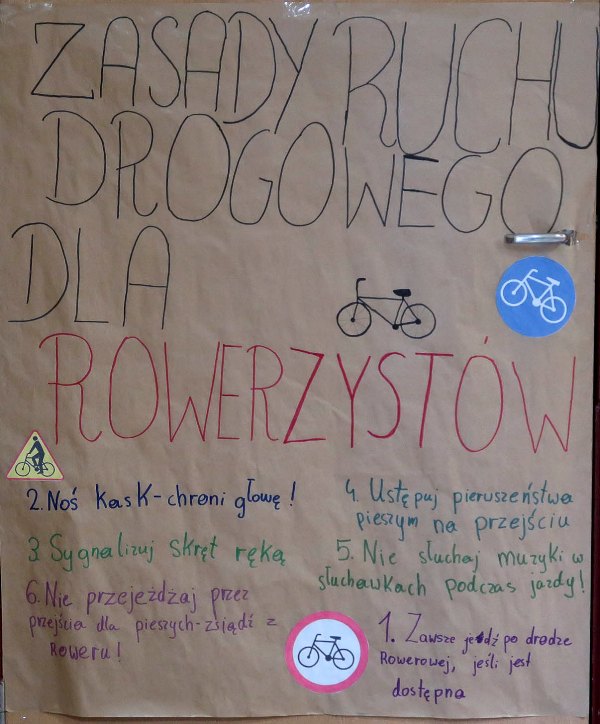 ZASADY RUCHU
DROGOWEGO
DLA
ROWERZYSTÓW
2. Noś kask - chroni głowę!
3. Sygnalizuj skręt ręką
6. Nie przejeżdżaj przez
przejścia dla pieszych - zsiądź z
roweru!
4. Ustępuj pieruszeństwa
pieszym na przejściu
5. Nie słuchaj muzyki w
słuchawkach podczas jazdy!
1. Zawsze jedź po drodze
Rowerowej, jeśli jest
dostępna